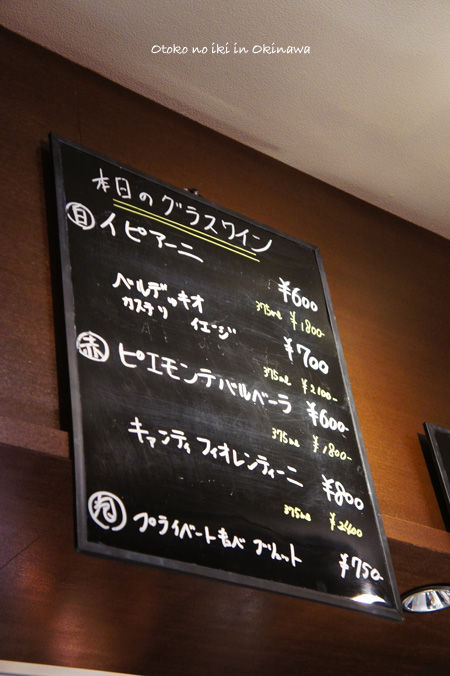 Otoko no iki in Okinawa
本日のグラスワイン
白 イピアーニ ¥600
375ml ¥1800-
ベルデッキオ
カステリ イエージ ¥700
375ml ¥2100-
赤 ピエモンテバルベーラ ¥600-
375ml ¥1800-
キァンティ フィオレンティーニ ¥800
375ml ¥2400
泡 プライベートキュベ ブリュット ¥750-